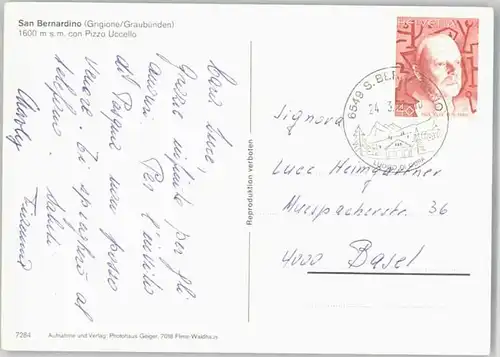 San Bernardino (Grigione/Graubünden)
1600 m s.m. con Pizzo Uccello
Cara Luce,
Grazie infinite per gli
auguri. Per l'invito
di Pasqua non posso
venire. Ti spiegherò al
telefono. Saluti
Reproduktion verboten
HELVETIA
6549 S. BERNARDINO
24.3.
Signora
Luce Heimgartner
Muespacherstr. 36
4000 Basel
7264 Aufnahme und Verlag: Photohaus Geiger, 7018 Flims-Waldhaus